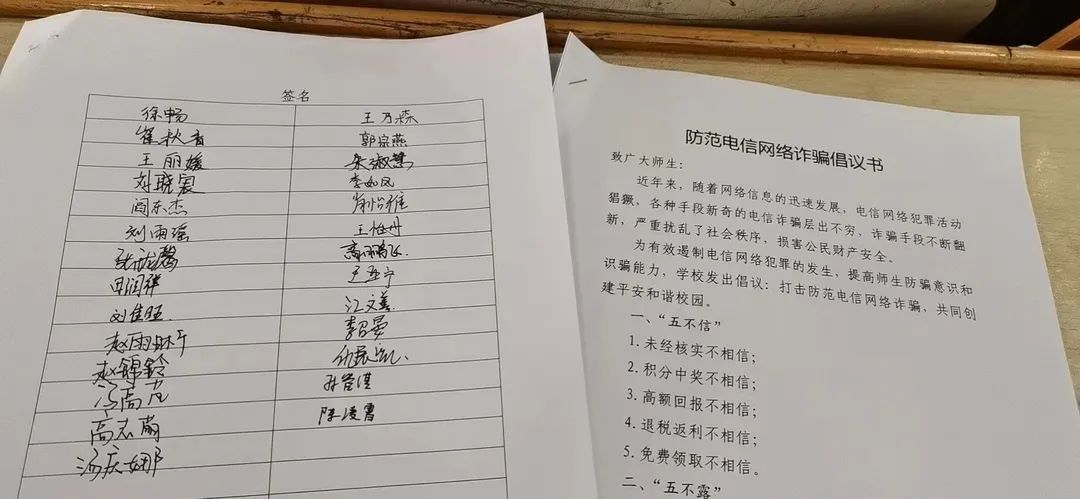 签名
徐畅 王乃森
崔秋音 郭宗燕
王丽媛 朱淑慧
刘晓宸 李如凤
闫东杰 肖怡维
刘雨瑶 王怡丹
高鹏飞
田润祥
刘佳旺 江文善
李绍晏
赵锦铃
冯高芃
高志萌 陈凌霄
汤庆娜
防范电信网络诈骗倡议书
致广大师生：
近年来，随着网络信息的迅速发展，电信网络犯罪活动
猖獗，各种手段新奇的电信诈骗层出不穷，诈骗手段不断翻
新，严重扰乱了社会秩序，损害公民财产安全。
为有效遏制电信网络犯罪的发生，提高师生防骗意识和
识骗能力，学校发出倡议：打击防范电信网络诈骗，共同创
建平安和谐校园。
一、“五不信”
1.未经核实不相信；
2.积分中奖不相信；
3.高额回报不相信；
4.退税返利不相信；
5.免费领取不相信。
二、“五不露”